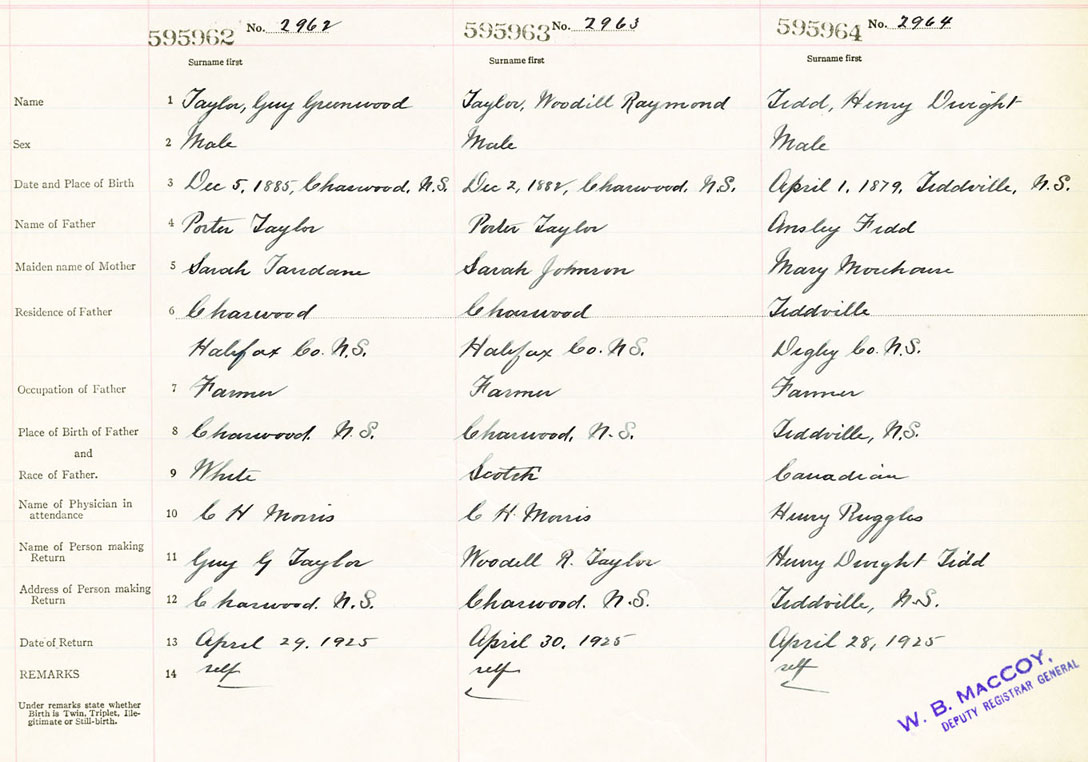 595962 No. 2962 595963 No. 2963 595964 No. 2964
Surname first Surname first Surname first
Name 1 Taylor, Guy Greenwood Taylor, Woodill Raymond Tidd, Henry Dwight
Sex 2 Male Male Male
Date and Place of Birth 3 Dec 5, 1885, Chaswood, N.S. Dec 2, 1882, Chaswood, N.S. April 1, 1879, Tiddville, N.S.
Name of Father 4 Porter Taylor Porter Taylor Ansley Tidd
Maiden name of Mother 5 Sarah Sarah Johnson Mary Morehouse
Residence of Father 6 Chaswood Chaswood Tiddville
Halifax Co. N.S. Halifax Co. N.S. Digby Co. N.S.
Occupation of Father 7 Farmer Farmer Farmer
Place of Birth of Father 8 Chaswood. N.S. Chaswood, N.S. Tiddville, N.S.
and
Race of Father. 9 White Scotch Canadian
Name of Physician in
attendance 10 C H Morris C H Morris Henry Ruggles
Name of Person making
Return 11 Guy G Taylor Woodell R. Taylor Henry Dwight Tidd
Address of Person making
Return 12 Chaswood. N.S. Chaswood. N.S. Tiddville, N.S.
Date of Return 13 April 29, 1925 April 30, 1925 April 28, 1925
REMARKS 14 self self self
Under remarks state whether
Birth is Twin, Triplet, Ille-
gitimate or Still-birth.
W. B. MACCOY,
DEPUTY REGISTRAR GENERAL